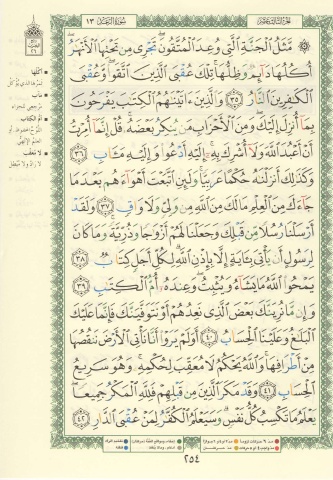 الجزء الثالث عشر
سورة الرعد ١٣
۞ مَّثَلُ الْجَنَّةِ الَّتِي وُعِدَ الْمُتَّقُونَ تَجْرِي مِن تَحْتِهَا الْأَنْهَارُ
أُكُلُهَا دَائِمٌ وَظِلُّهَا تِلْكَ عُقْبَى الَّذِينَ اتَّقَوا وَّعُقْبَى
الْكَافِرِينَ النَّارُ ٣٥ وَالَّذِينَ آتَيْنَاهُمُ الْكِتَابَ يَفْرَحُونَ
بِمَا أُنزِلَ إِلَيْكَ وَمِنَ الْأَحْزَابِ مَن يُنكِرُ بَعْضَهُ قُلْ إِنَّمَا أُمِرْتُ
أَنْ أَعْبُدَ اللَّهَ وَلَا أُشْرِكَ بِهِ إِلَيْهِ أَدْعُو وَإِلَيْهِ مَآبِ ٣٦
وَكَذَلِكَ أَنزَلْنَاهُ حُكْمًا عَرَبِيًّا وَلَئِنِ اتَّبَعْتَ أَهْوَاءَهُم بَعْدَمَا
جَاءَكَ مِنَ الْعِلْمِ مَا لَكَ مِنَ اللَّهِ مِن وَلِيٍّ وَلَا وَاقٍ ٣٧ وَلَقَدْ
أَرْسَلْنَا رُسُلًا مِّن قَبْلِكَ وَجَعَلْنَا لَهُمْ أَزْوَاجًا وَذُرِّيَّةً وَمَا كَانَ
لِرَسُولٍ أَن يَأْتِيَ بِآيَةٍ إِلَّا بِإِذْنِ اللَّهِ لِكُلِّ أَجَلٍ كِتَابٌ ٣٨
يَمْحُو اللَّهُ مَا يَشَاءُ وَيُثْبِتُ وَعِندَهُ أُمُّ الْكِتَابِ ٣٩
وَإِن مَّا نُرِيَنَّكَ بَعْضَ الَّذِي نَعِدُهُمْ أَوْ نَتَوَفَّيَنَّكَ فَإِنَّمَا عَلَيْكَ
الْبَلَاغُ وَعَلَيْنَا الْحِسَابُ ٤٠ أَوَلَمْ يَرَوْا أَنَّا نَأْتِي الْأَرْضَ نَنقُصُهَا
مِنْ أَطْرَافِهَا وَاللَّهُ يَحْكُمُ لَا مُعَقِّبَ لِحُكْمِهِ وَهُوَ سَرِيعُ
الْحِسَابِ ٤١ وَقَدْ مَكَرَ الَّذِينَ مِن قَبْلِهِمْ فَلِلَّهِ الْمَكْرُ جَمِيعًا
يَعْلَمُ مَا تَكْسِبُ كُلُّ نَفْسٍ وَسَيَعْلَمُ الْكُفَّارُ لِمَنْ عُقْبَى الدَّارِ ٤٢
أكلها
مآب
أم الكتاب
لا معقب
٢٥٤